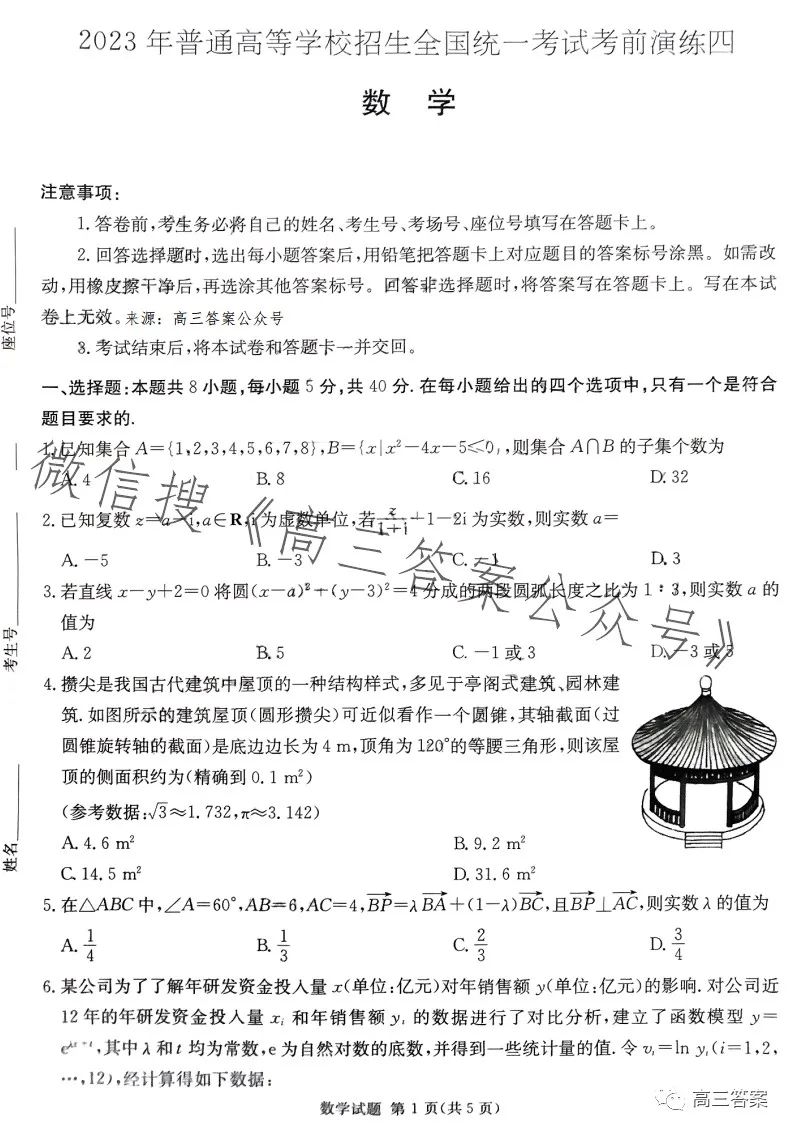 2023年普通高等学校招生全国统一考试考前演练四
数 学
注意事项:
1.答卷前,考生务必将自己的姓名、考生号、考场号、座位号填写在答题卡上。
2.回答选择题时,选出每小题答案后,用铅笔把答题卡上对应题目的答案标号涂黑。如需改
动,用橡皮擦干净后,再选涂其他答案标号。回答非选择题时,将答案写在答题卡上。写在本试
卷上无效。来源:高三答案公众号
3.考试结束后,将本试卷和答题卡一并交回。
一、选择题:本题共8小题,每小题5分,共40分.在每小题给出的四个选项中,只有一个是符合
题目要求的.
1.已知集合A={1,2,3,4,5,6,7,8},B={x|x²-4x-5≤0},则集合A∩B的子集个数为
A.4 B.8 C.16 D.32
2.已知复数z=a-i,a∈R,i为虚数单位,若z/(1+i)+1-2i为实数,则实数a=
A.-5 B.-3 C.-1 D.3
3.若直线x-y+2=0将圆(x-a)²+(y-3)²=4分成的两段圆弧长度之比为1:3,则实数a的
值为
A.2 B.5 C.-1或3 D.-3或5
4.攒尖是我国古代建筑中屋顶的一种结构样式,多见于亭阁式建筑、园林建
筑.如图所示的建筑屋顶(圆形攒尖)可近似看作一个圆锥,其轴截面(过
圆锥旋转轴的截面)是底边边长为4 m,顶角为120°的等腰三角形,则该屋
顶的侧面积约为(精确到0.1 m²)
(参考数据:√3≈1.732,π≈3.142)
A.4.6 m² B.9.2 m²
C.14.5 m² D.31.6 m²
5.在△ABC中,∠A=60°,AB=6,AC=4,BP→=λBA→+(1-λ)BC→,且BP→⊥AC→,则实数λ的值为
A.1/4 B.1/3 C.2/3 D.3/4
6.某公司为了了解年研发资金投入量x(单位:亿元)对年销售额y(单位:亿元)的影响.对公司近
12年的年研发资金投入量xᵢ和年销售额yᵢ的数据进行了对比分析,建立了函数模型y=
,其中λ和t均为常数,e为自然对数的底数,并得到一些统计量的值.令vᵢ=ln yᵢ(i=1,2,
…,12),经计算得如下数据:
数学试题 第1页(共5页)
座位号
考生号
姓名
微信搜《高三答案公众号》
高三答案